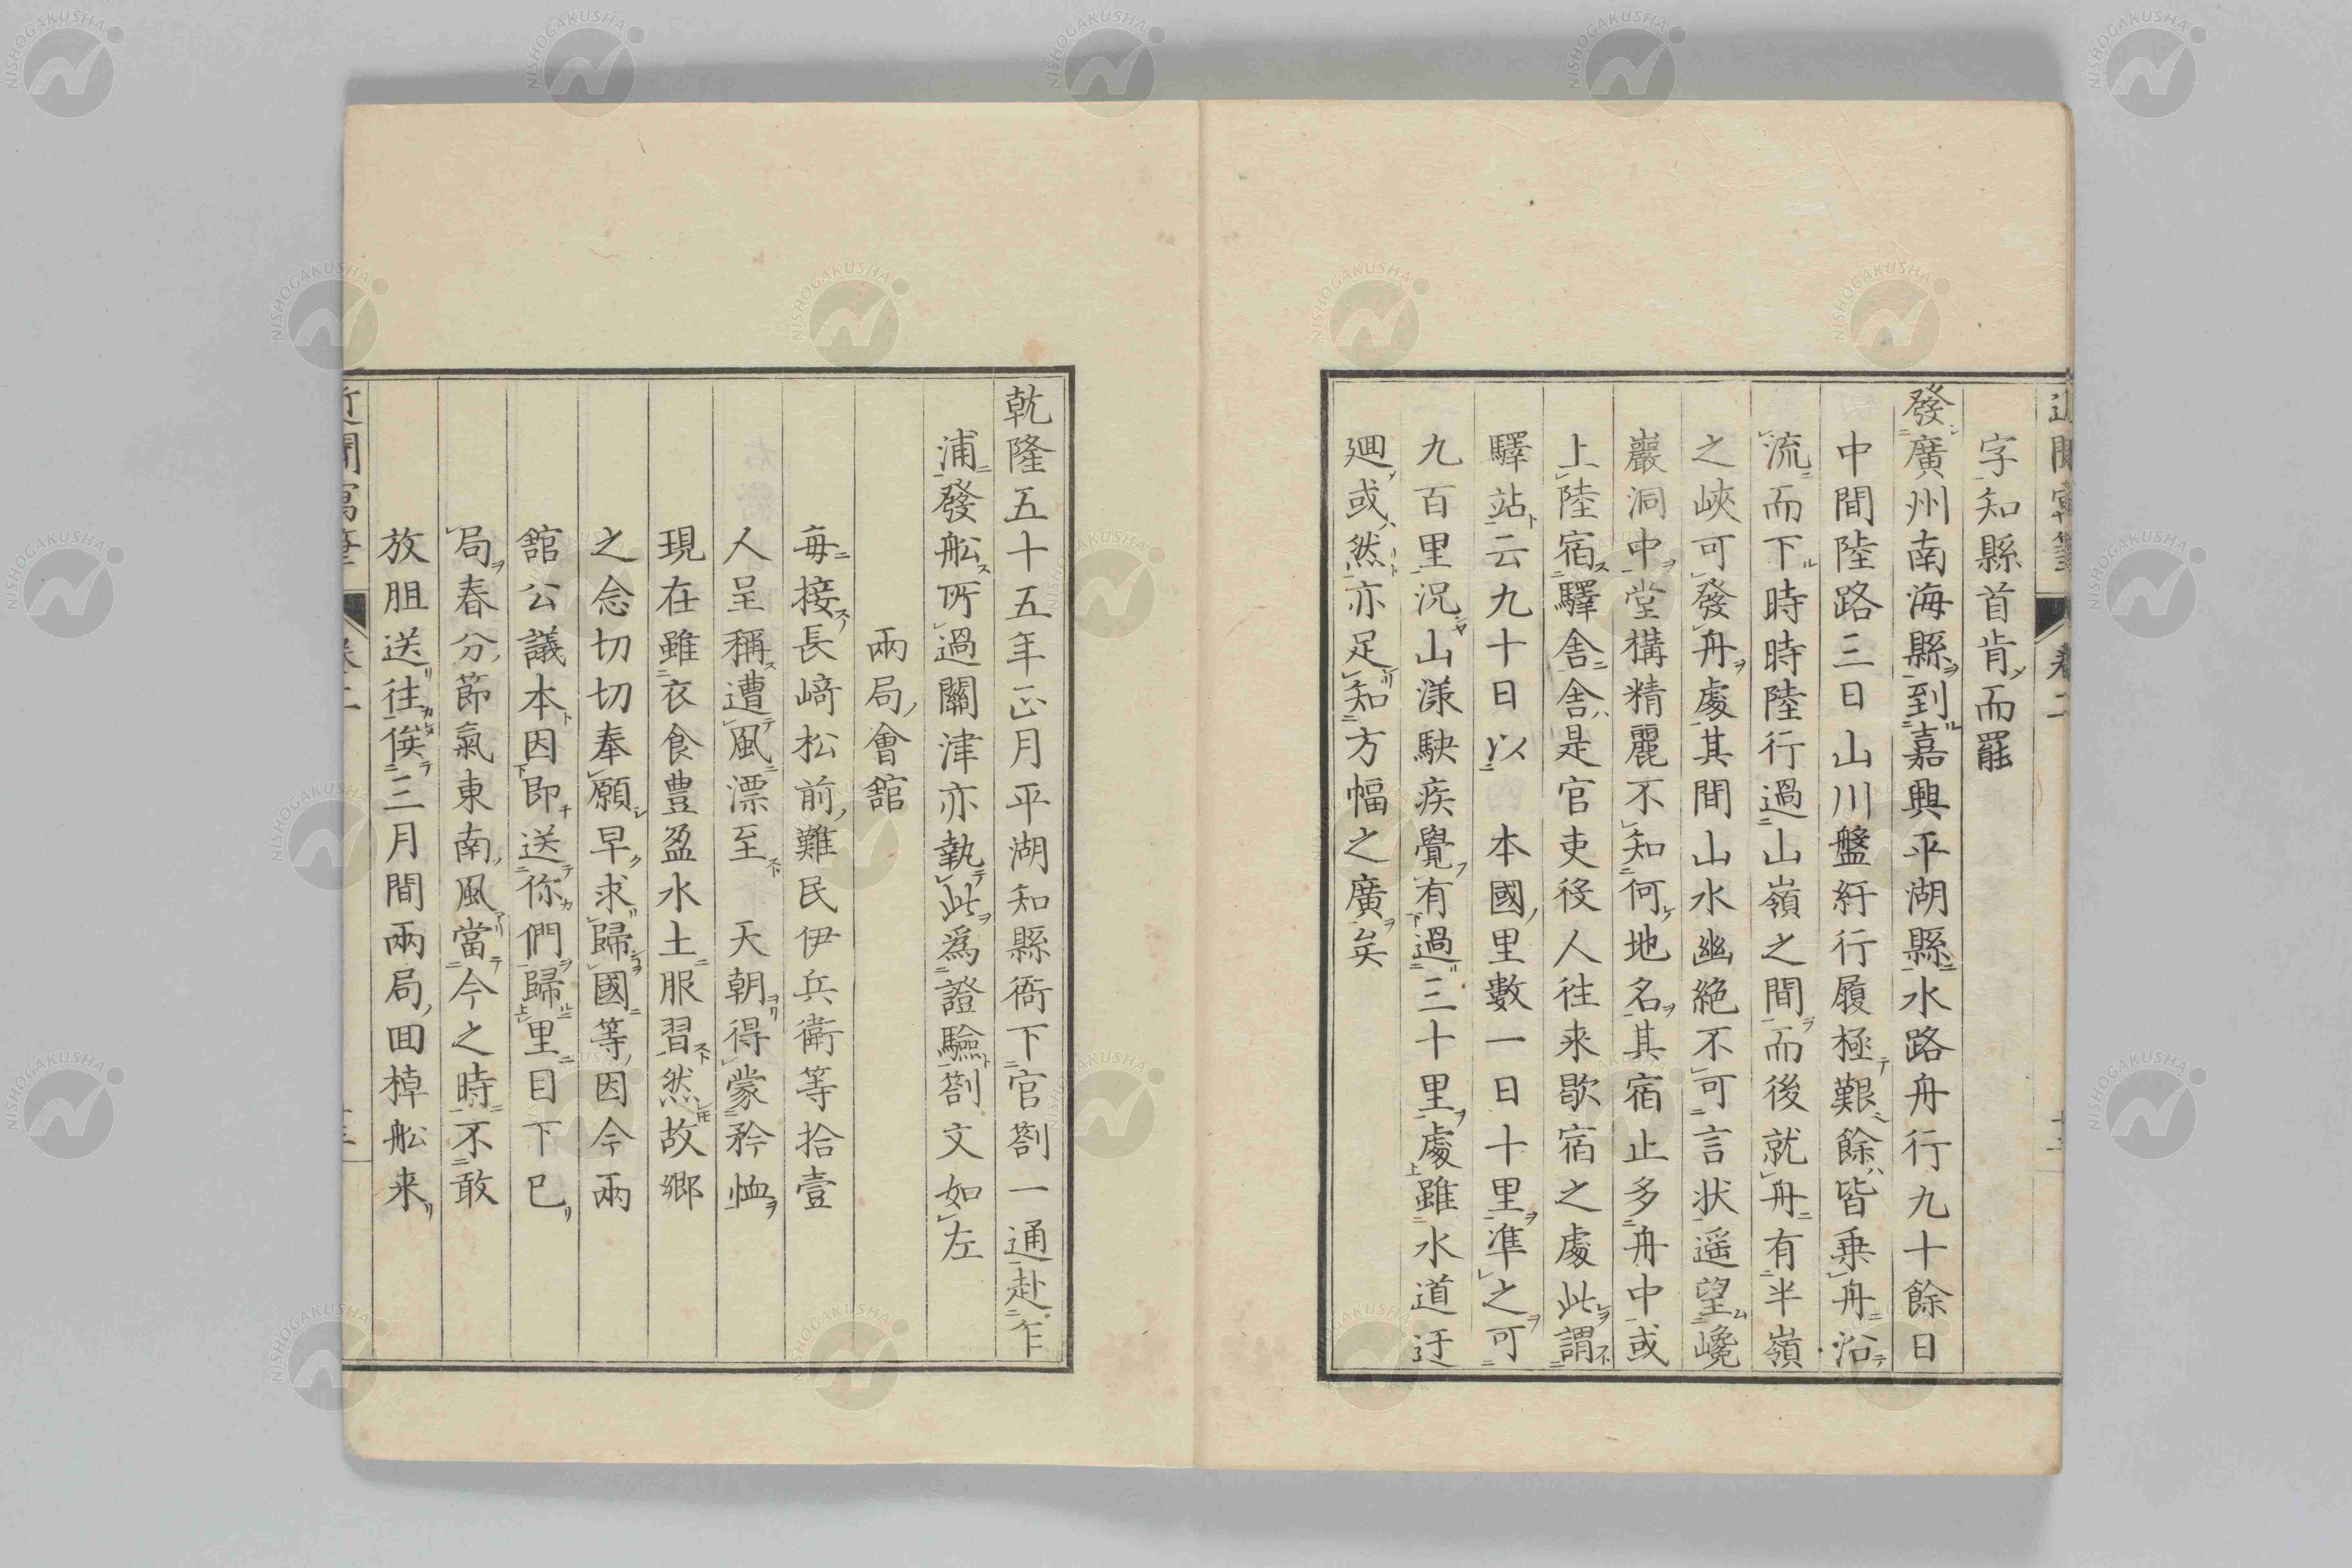 字知縣首肯而罷
發廣州南海縣到嘉興平湖縣水路舟行九十餘日
中間陸路三日山川盤紆行履極艱餘皆乗舟沿
流而下時時陸行過山嶺之間而後就舟有半嶺
之峽可發舟處其間山水幽絕不可言状遥望巉
巖洞中堂構精麗不知何地名其宿止多舟中或
上陸宿驛舎舎是官吏役人往来歇宿之處此謂
驛站云九十日以 本國里數一日十里準之可
九百里況山漾駛疾覺有過三十里處雖水道迂
廻或然亦足知方幅之廣矣
乾隆五十五年正月平湖知縣衙下官劄一通赴乍
浦發舩所過關津亦執此為證驗劄文如左
兩局會舘
毎接長﨑松前難民伊兵衛等拾壹
人呈稱遭風漂至 天朝得蒙矜恤
現在雖衣食豊盈水土服習然故郷
之念切切奉願早求歸國等因今兩
舘公議本因即送你們歸里目下已
局春分節氣東南風當今之時不敢
放胆送往俟三月間兩局囬棹舩来
近聞寓筆 卷二
NISHOGAKUSHA